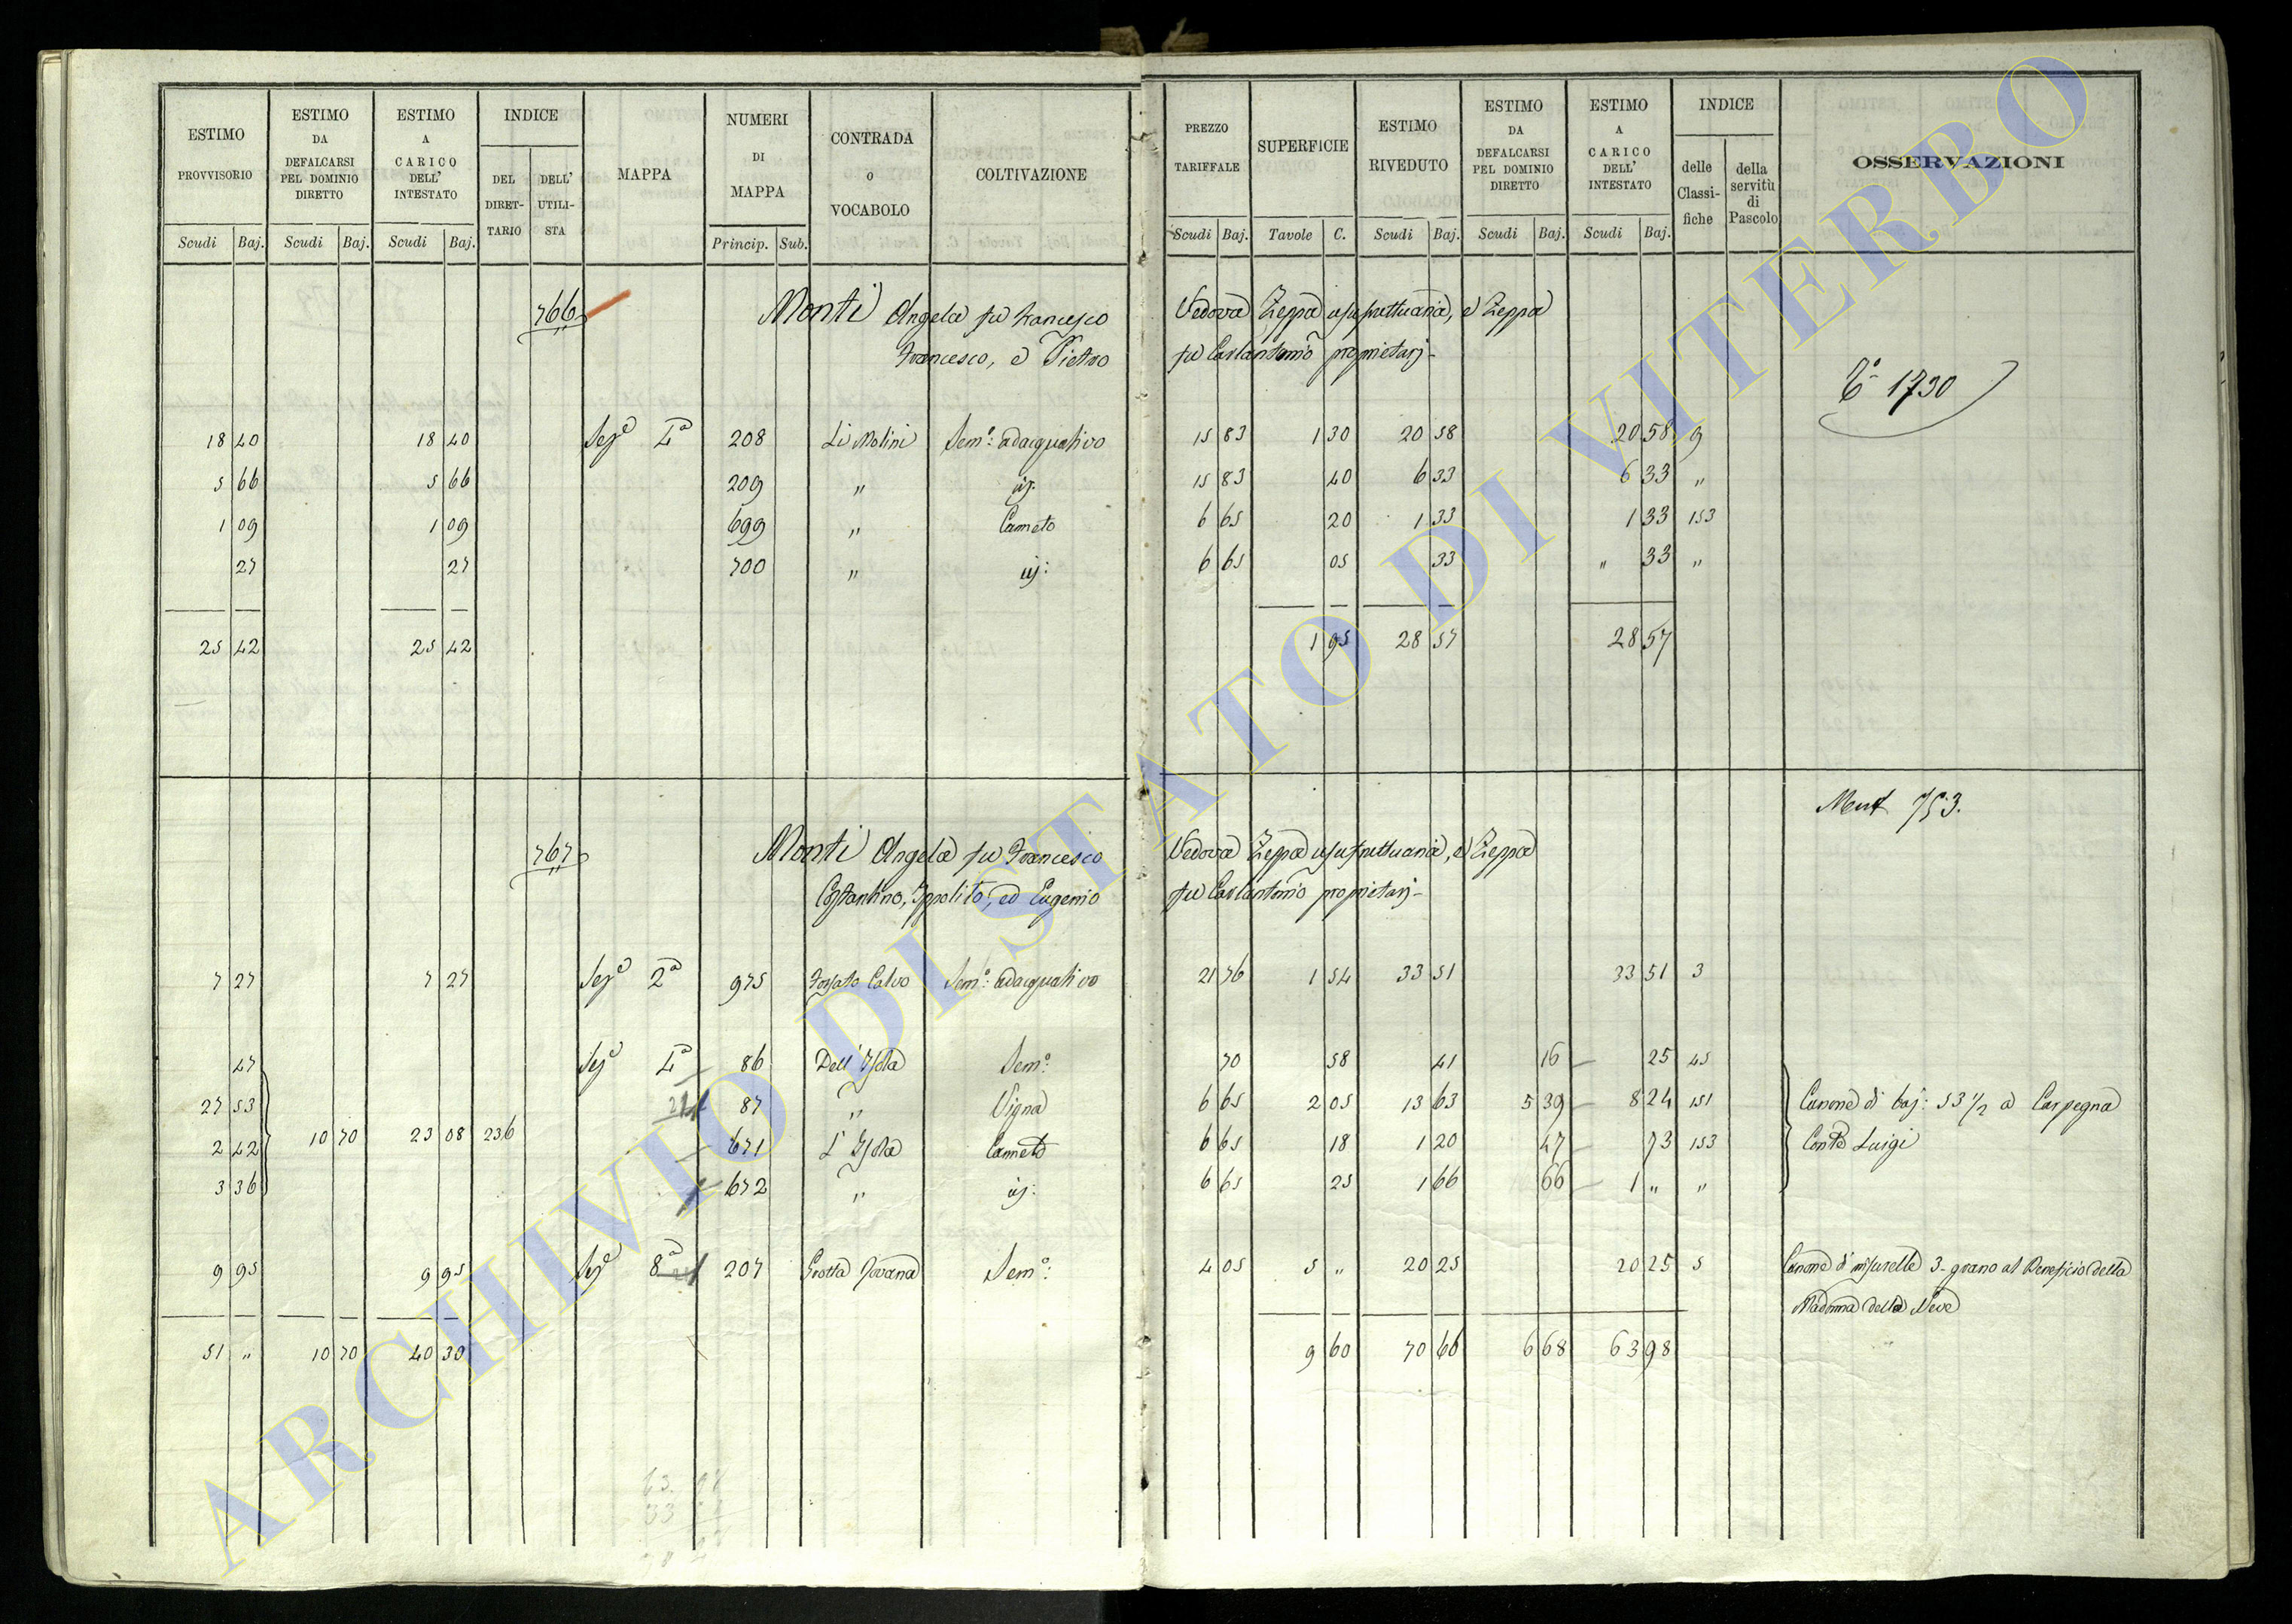 ESTIMO PROVVISORIO Scudi Baj. ESTIMO DA DEFALCARSI PEL DOMINIO DIRETTO Scudi Baj. ESTIMO A CARICO DELL' INTESTATO Scudi Baj. INDICE DEL DIRETTARIO DELL' UTILISTA MAPPA NUMERI DI MAPPA Princip. Sub. CONTRADA o VOCABOLO COLTIVAZIONE
PREZZO TARIFFALE Scudi Baj. SUPERFICIE Tavole C. ESTIMO RIVEDUTO Scudi Baj. ESTIMO DA DEFALCARSI PEL DOMINIO DIRETTO Scudi Baj. ESTIMO A CARICO DELL' INTESTATO Scudi Baj. INDICE delle Classifiche della servitù di Pascolo OSSERVAZIONI
766 Monti Angela fu Francesco Vedova Zeppa usufruttuaria, e Zeppa
Francesco, e Pietro fu Carlantonio proprietarj
1730
18 40 18 40 Sez.e 4a 208 Li Molini Sem.o adacquativo 15 83 1 30 20 58 20 58 9
5 66 5 66 209 " id. 15 83 40 6 33 6 33 "
1 09 1 09 699 " Canneto 6 65 20 1 33 1 33 153
27 27 700 " id: 6 65 05 33 " 33 "
25 42 25 42 1 95 28 57 28 57
753.
767 Monti Angela fu Francesco Vedova Zeppa usufruttuaria, e Zeppa
Costantino, Ippolito, ed Eugenio fu Carlantonio proprietarj
7 27 7 27 Sez.e 2a 975 Fossato Calvo Sem.o adacquativo 21 76 1 54 33 51 33 51 3
47 Sez.e 4a 86 Dell' Isola Sem.o: 70 58 41 16 25 45
27 53 87 " Vigna 6 65 2 05 13 63 5 39 8 24 151 Canone di baj: 53 1/2 a Carpegna
2 42 10 70 23 08 236 671 L' Isola Canneto 6 65 18 1 20 47 73 153 Conte Luigi
3 36 672 " id: 6 65 25 1 66 66 1 " "
9 95 9 95 Sez.e 8a 207 Grotta Sem.o: 4 05 5 " 20 25 20 25 5 Canone di misurelle 3 grano al Beneficio della
Madonna della Neve
51 " 10 70 40 30 9 60 70 66 6 68 63 98
ARCHIVIO DI STATO DI VITERBO